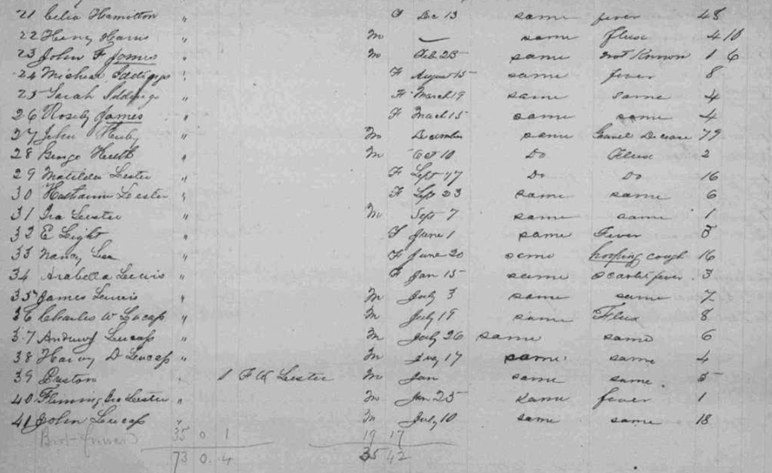 21 Celia Hamilton " F Dec 13 same fever 48
22 Henry Harris " M — same flux 4 10
23 John F James " M Feb 25 same not Known 1 6
24 Michael Iddings " F August 15 same fever 8
25 Sarah Iddings " F March 19 same same 4
26 Rosety James " F March 15 same same 4
27 John " M December same Gravel Disease 79
28 " M Oct 10 Do Flux 2
29 Matilda Lester " F Sept 17 Do Do 16
30 Lester " F Sept 23 same same 6
31 Ira Lester " M Sept 7 same same 1
32 E Light " F June 1 same Fever 5
33 Nancy Lee " F June 20 same hooping cough 16
34 Arabella Lewis " F Jan 15 same scarlet fever 3
35 James Lewis " M July 3 same same 7
36 Charles W Lucass " M July 19 same Flux 8
37 Andrew J Lucass " M July 26 same same 6
38 Harvy D Lucass " M Aug 17 same same 4
39 Easton " 1 F W Lester M Jan same same 5
40 Fleming Lester " M Jan 25 same fever 1
41 John Lucass " M July 10 same same 18
35 0 1 19 17
73 0 4 35 42